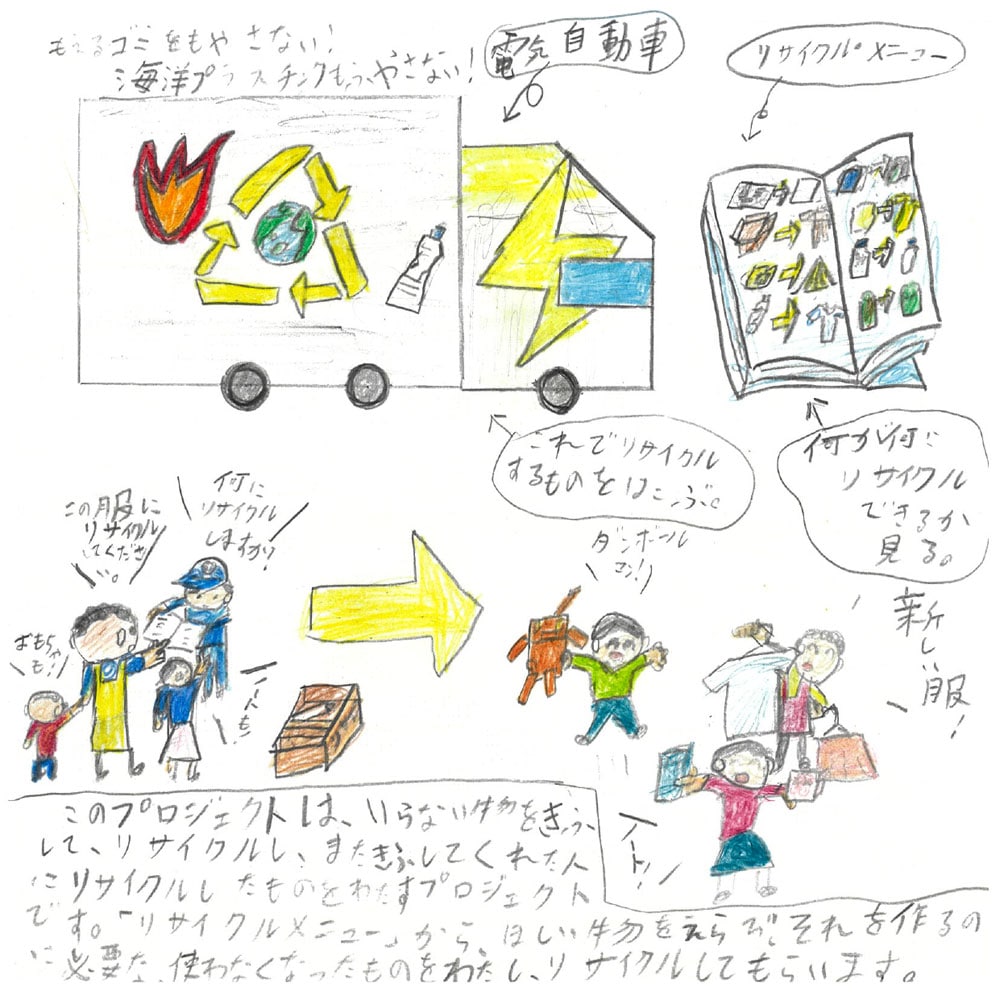 もえるゴミをもやさない!
海洋プラスチックもふやさない!
電気自動車
リサイクルメニュー
これでリサイクル
するものをはこぶ。
何が何に
リサイクル
できるか
見る。
この服に
リサイクル
してくださ
い。
何に
リサイクル
しますか?
おもちゃ
も!
ノートも!
ダンボール
マン!
新しい服!
ノート!
このプロジェクトは、いらない物をきふ
して、リサイクルし、またきふしてくれた人
にリサイクルしたものをわたすプロジェクト
です。「リサイクルメニュー」から、ほしい物をえらび、それを作るの
に必要な、使わなくなったものをわたし、リサイクルしてもらいます。